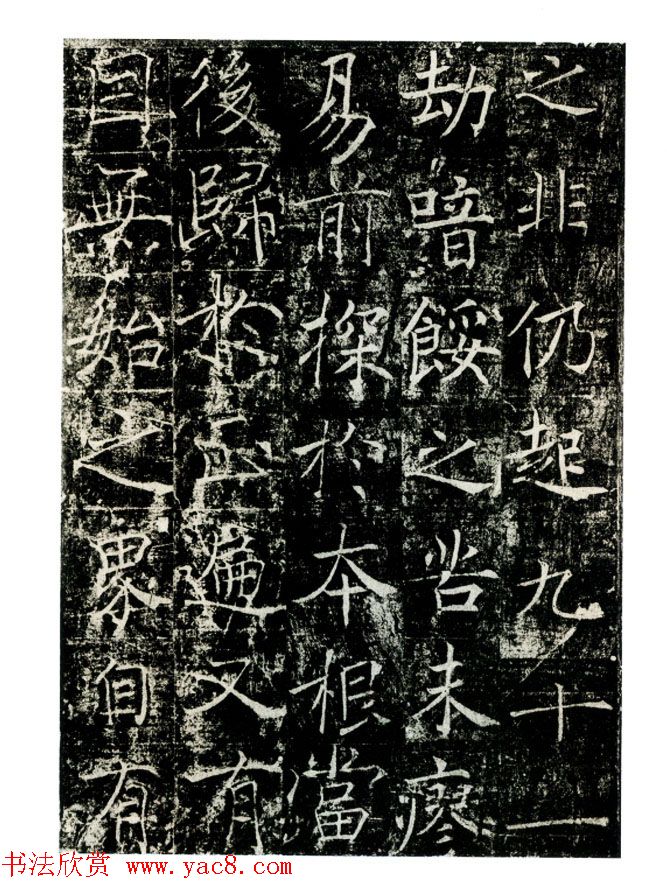 之非仍起九十一
劫喑餒之苦未瘳
易前探於本根當
後歸於正遍又有
無始之界有
书法欣赏 www.yac8.com